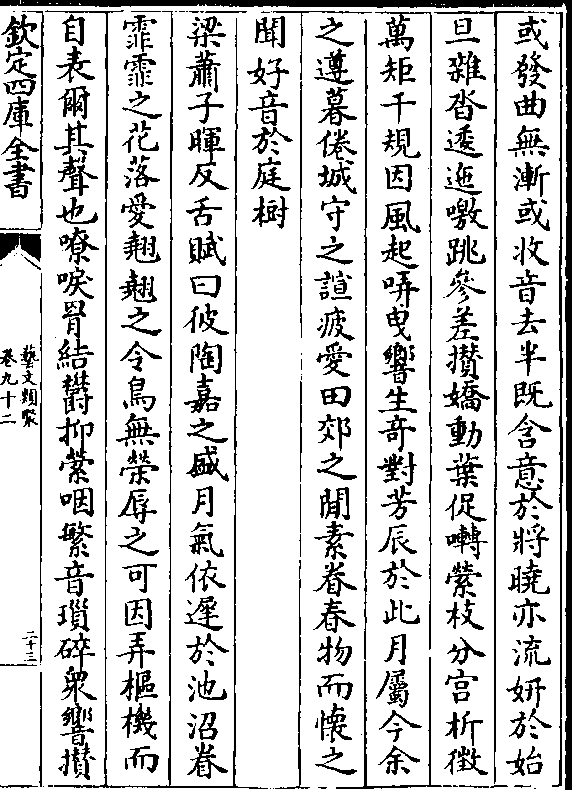 或發曲無漸或收音去半既含意於將曉亦流妍於始
旦雜沓逶迤噭跳參差攢嬌動葉促囀縈枝分宮析徵
萬矩千規因風起哢曳響生奇對芳辰於此月屬今余
之遵暮倦城守之諠疲愛田郊之閒素眷春物而懷之
聞好音於庭樹
梁蕭子暉反舌賦曰彼陶嘉之盛月氣依遲於池沼眷
霏霏之花落愛翹翹之令鳥無榮辱之可因弄樞機而
自表爾其聲也嘹唳罥結鬱抑縈咽繁音瑣碎衆響攢
欽定四庫全書
藝文類聚
卷九十二
二十三